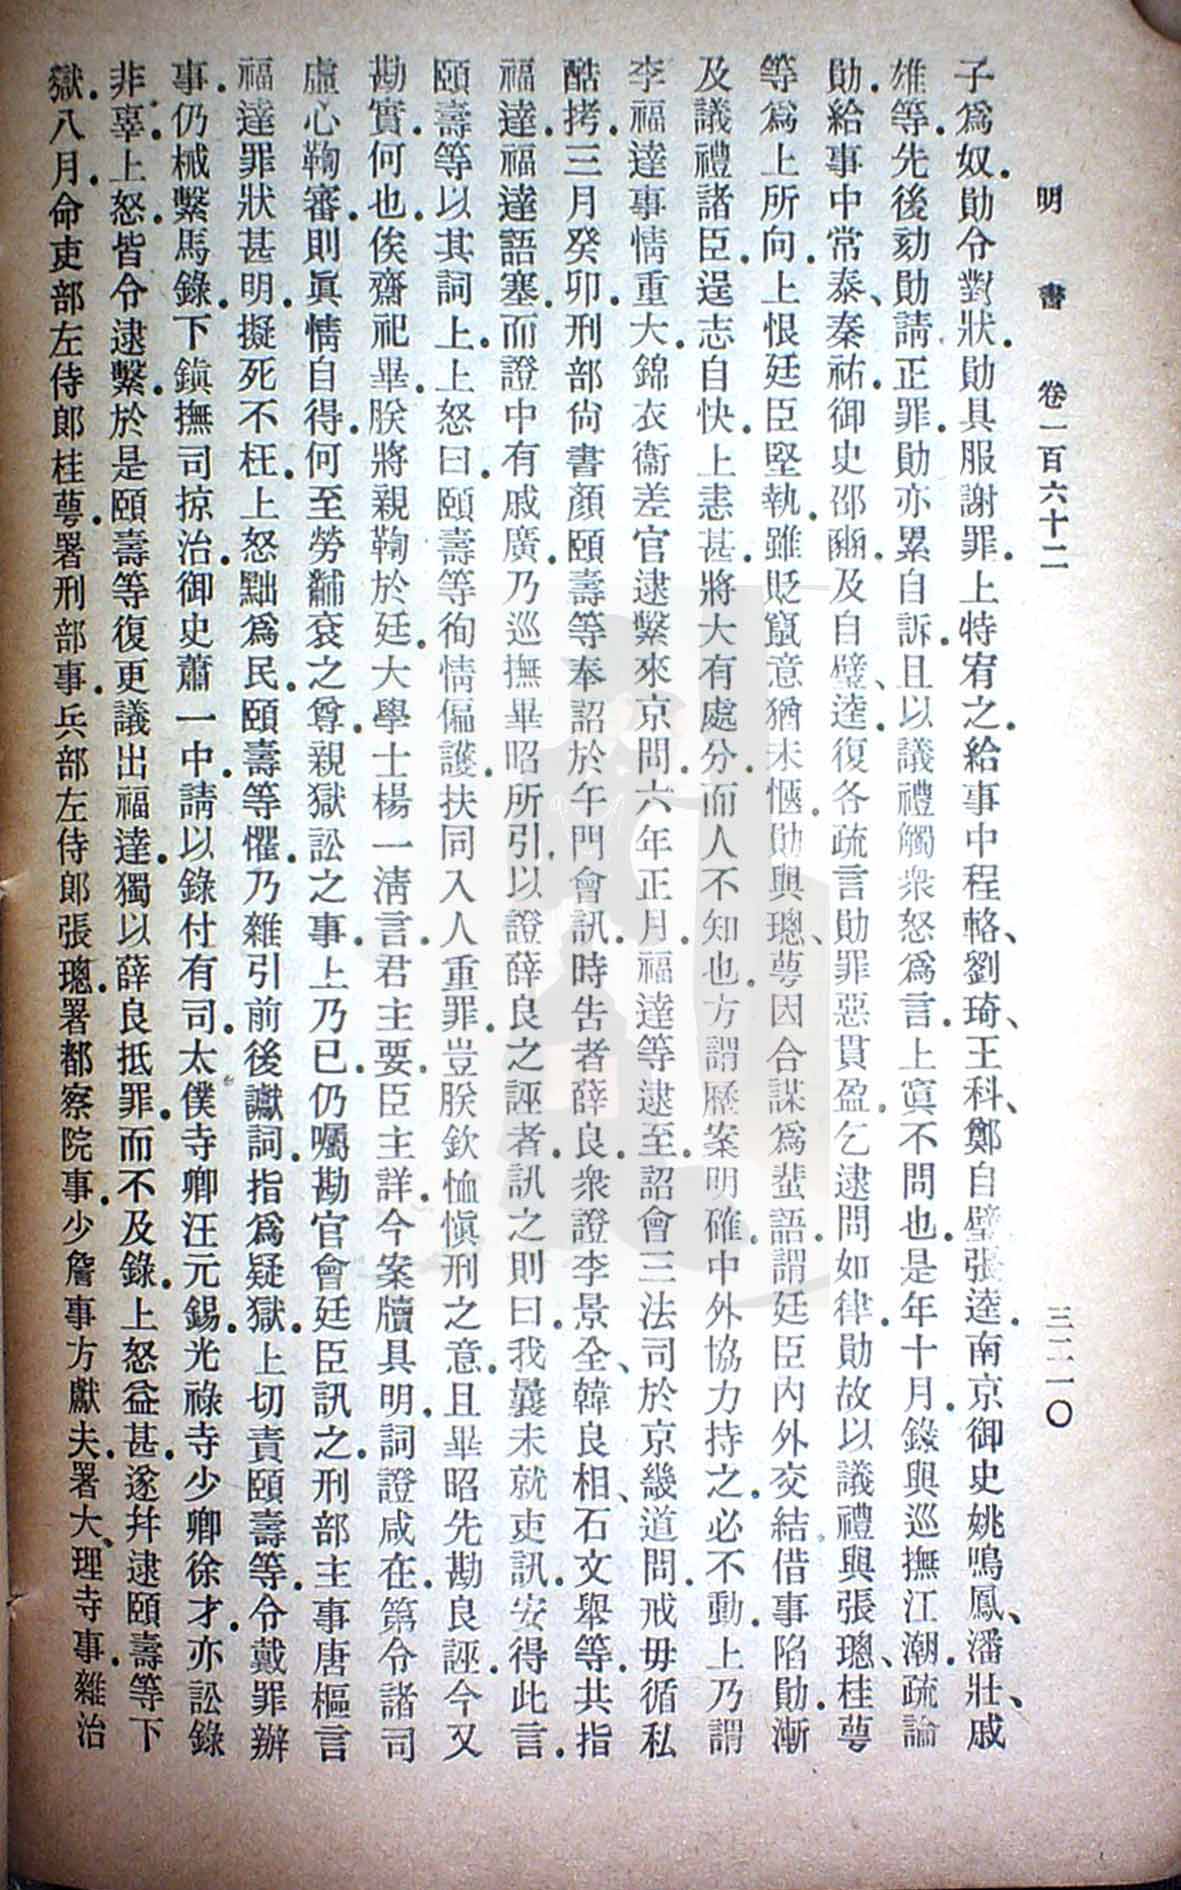 明書 卷一百六十二 三二一〇
子爲奴．勛令對狀．勛具服謝罪．上特宥之．給事中程輅、劉琦、王科、鄭自璧、張逵．南京御史姚鳴鳳、潘壯、戚
雄等．先後劾勛．請正罪．勛亦累自訴．且以議禮觸衆怒爲言．上寘不問也．是年十月．錄與巡撫江潮．疏論
勛．給事中常泰、秦祐．御史邵豳．及自璧、逵．復各疏言勛罪惡貫盈．乞逮問如律．勛故以議禮與張璁、桂萼
等爲上所向．上恨廷臣堅執．雖貶竄．意猶未愜．勛與璁、萼因合謀爲蜚語．謂廷臣內外交結．借事陷勛．漸
及議禮諸臣．逞志自快．上恚甚．將大有處分．而人不知也．方謂歷案明確．中外協力持之．必不動．上乃謂
李福達事情重大．錦衣衞差官逮繫來京問．六年正月．福達等逮至．詔會三法司於京畿道問．戒毋循私
酷拷．三月癸卯．刑部尙書顏頤壽等奉詔於午門會訊．時告者薛良．衆證李景全、韓良相、石文舉等．共指
福達．福達語塞．而證中有戚廣．乃巡撫畢昭所引．以證薛良之誣者．訊之則曰．我曩未就吏訊．安得此言．
頤壽等以其詞上．上怒曰．頤壽等徇情偏護．扶同入人重罪．豈朕欽恤愼刑之意．且畢昭先勘良誣．今又
勘實．何也．俟齋祀畢．朕將親鞫於廷．大學士楊一淸言．君主要．臣主詳．今案牘具明．詞證咸在．第令諸司
虛心鞫審．則眞情自得．何至勞黼袞之尊．親獄訟之事．上乃已．仍囑勘官會廷臣訊之．刑部主事唐樞言
福達罪狀甚明．擬死不枉．上怒黜爲民．頤壽等懼．乃雜引前後讞詞．指爲疑獄．上切責頤壽等．令戴罪辦
事．仍械繫馬錄．下鎭撫司掠治．御史蕭一中．請以錄付有司．太僕寺卿汪元錫．光祿寺少卿徐才．亦訟錄
非辜．上怒．皆令逮繫．於是頤壽等復更議出福達．獨以薛良抵罪．而不及錄．上怒益甚．遂幷逮頤壽等下
獄．八月．命吏部左侍郎桂萼．署刑部事．兵部左侍郎張璁．署都察院事．少詹事方獻夫．署大理寺事．雜治